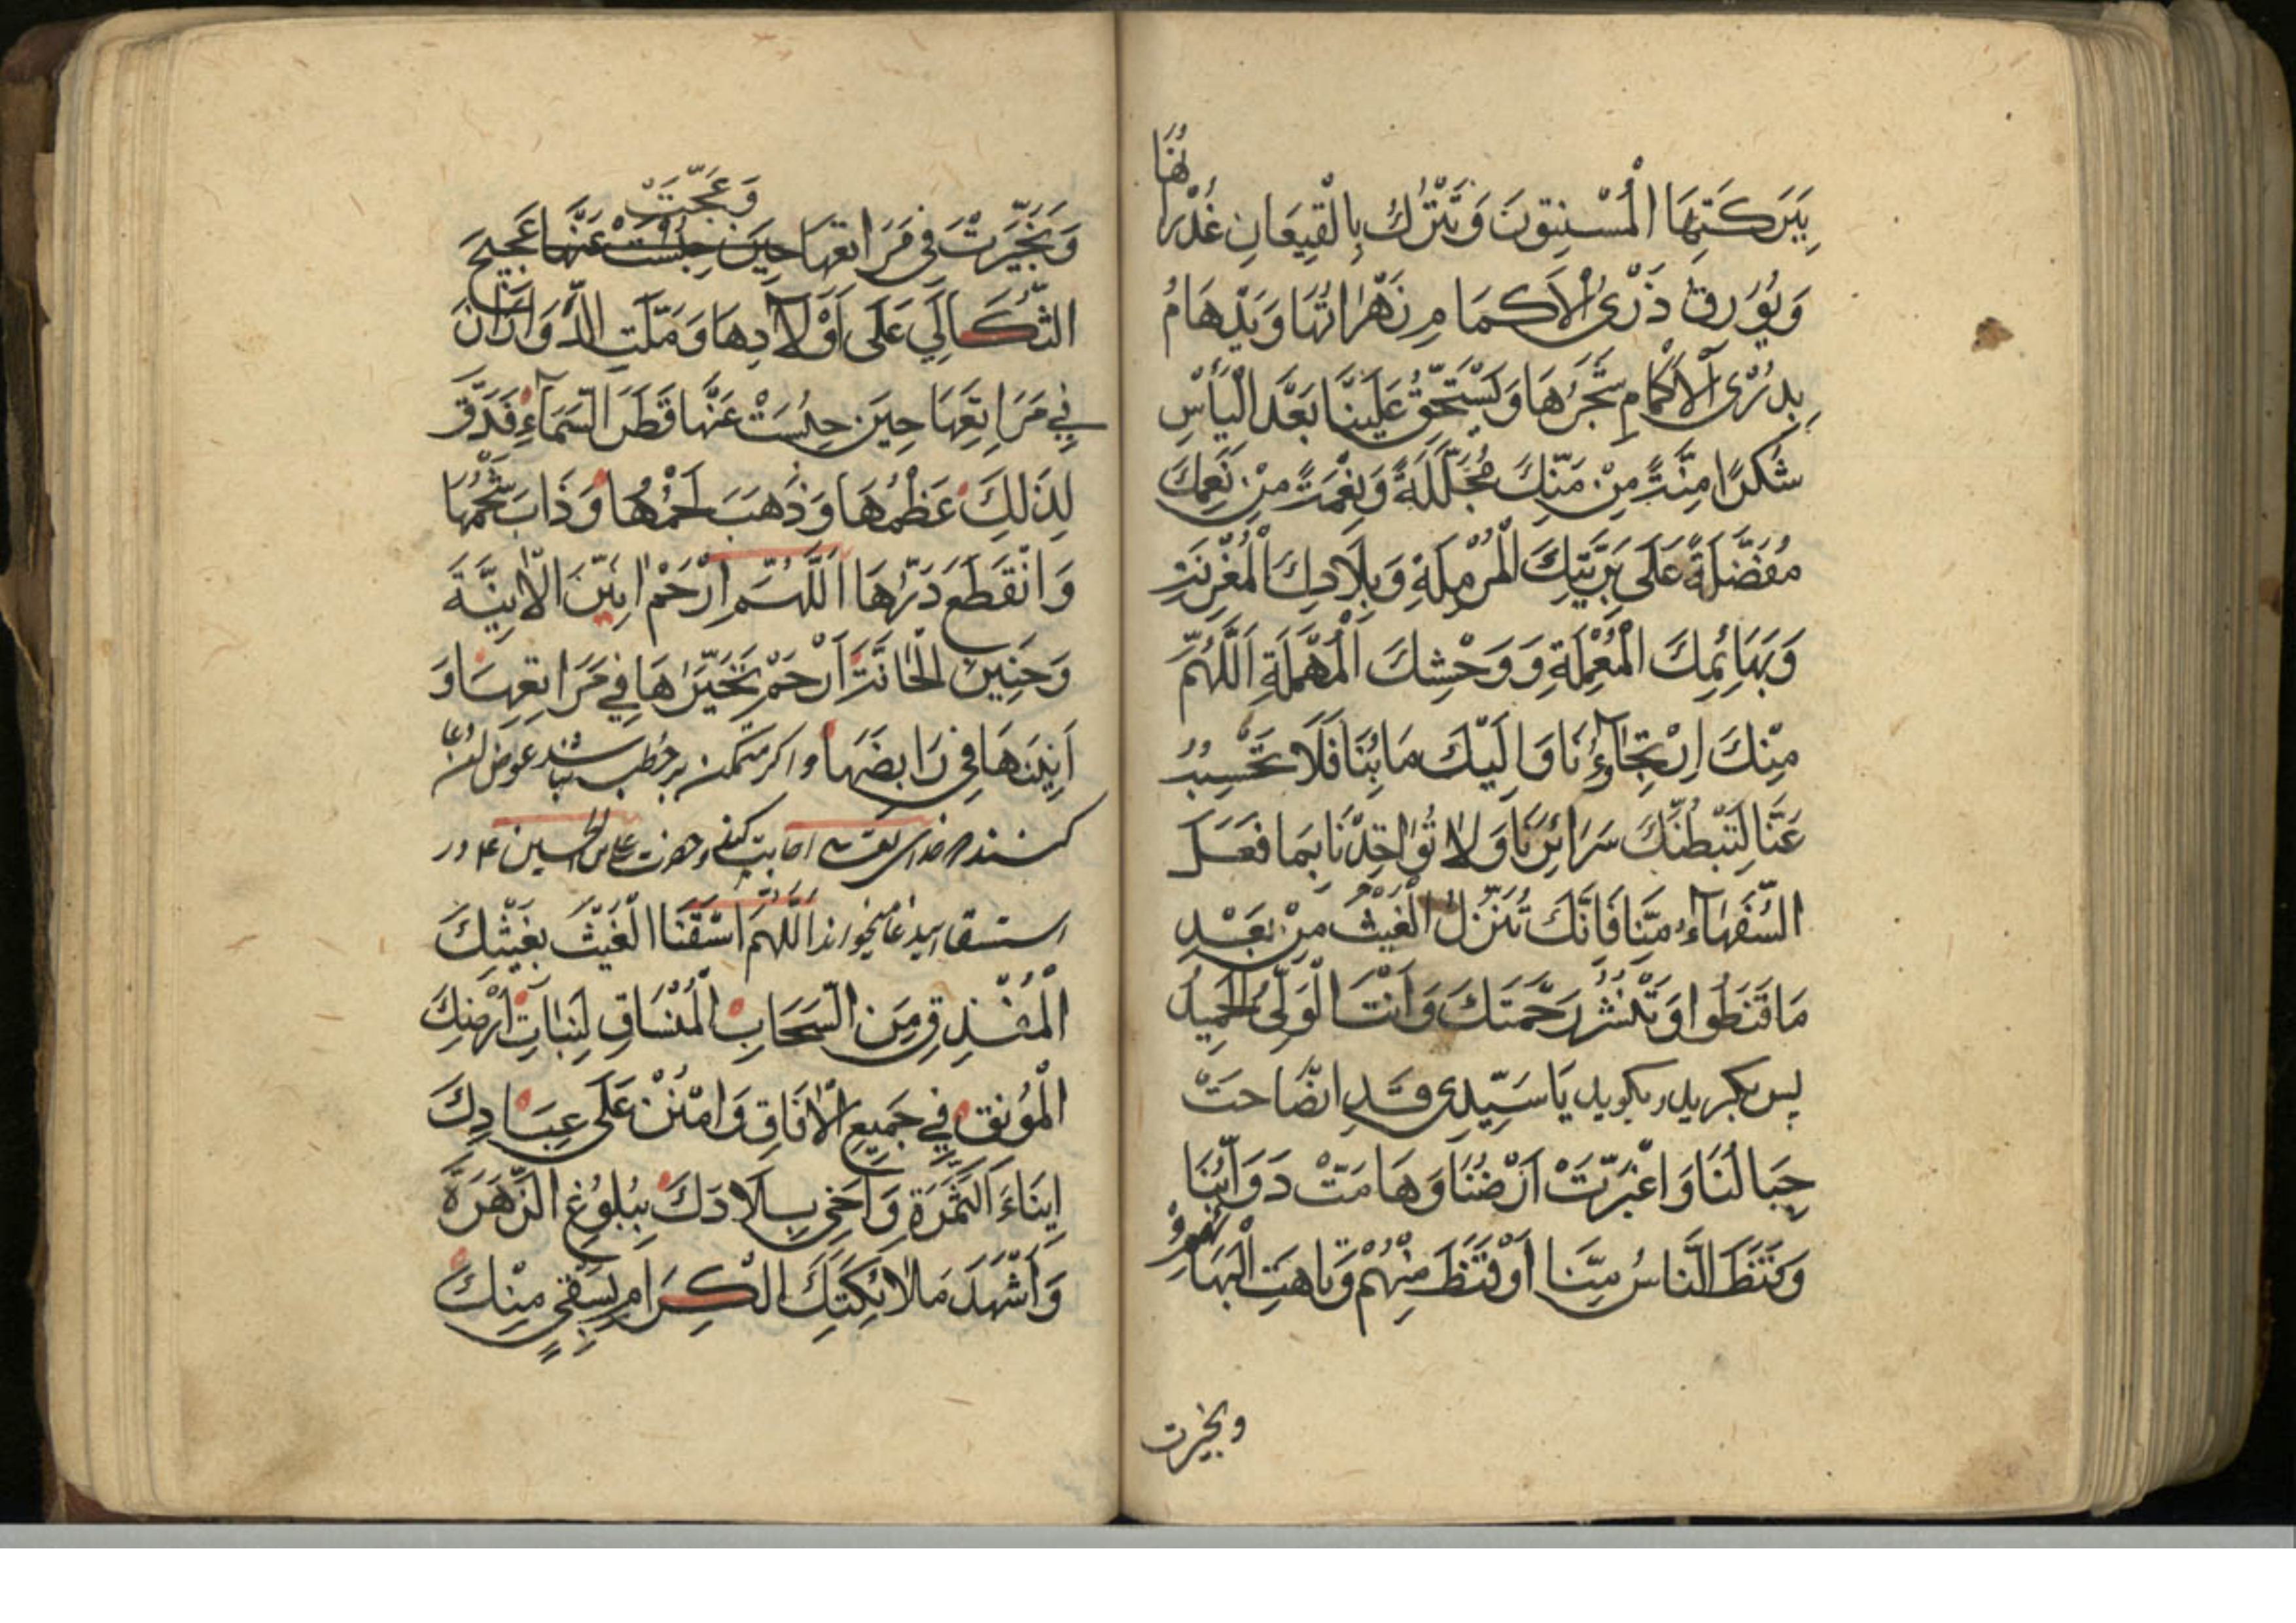 بِبَرَكَتِهَا الْمُسْنِتُونَ وَتَتْرُك بِالْقِيعَانِ غُدْرانُهَا
وَيُورِق ذُرْىَ الْاَكمَامِ زَهْرَاتُهَا وَيَدْهَامُ
بِذُرْىَ الْآكَامِ شَجَرُهَا وَيَسْتَحِقُّ عَلَيْنَا بَعْدَ الْيَأْسِ
شُكرًا مِنَّتً مِنْ مِنَنِكَ مُجَلِّلَةً وَنِعْمَتً مِنْ نِعَمِكَ
مُفَضَّلَةً عَلَى بَرِيَّتِكَ الْمُرْمِلَةِ وَبِلَادِكَ الْمُغْرِبَةِ
وَبَهَائِمِكَ الْمُعْمِلَةِ وَوَحْشِكَ الْمُهْمَلَةِ اَللَّهُمَّ
مِنْكَ اِرْتِجَآؤُنَا وَاِلَيْكَ مَابُنَا فَلَا تَحْبِسْهُ
عَنَّا لِتَبَطُّنِكَ سَرَائِرَنَا وَلَا تُوٰاخِذْنَا بِمَا فَعَلَ
السُّفَهَآءُ مِنَّا فَاِنَّكَ تُنَزِّلُ الْغَيْثَ مِنْ بَعْدِ
مَا قَنَطُوا وَتَنْشُرُ رَحْمَتَكَ وَاَنْتَ الْوَلِىُّ الْحَمِيدُ
پس بكريد وبكويد يَا سَيِّدِى قَدِ انْضَاحَتْ
جِبَالُنَا وَاغْبَرَّتْ اَرْضُنَا وَهَامَتْ دَوَآبُّنَا
وَقَنَطَ النَّاسُ مِنَّا اَوْ قَنَطَ مِنْهُمْ وَتَاهَتِ الْبَهَائِمُ
وتحيرت
وَتَحَيَّرَتْ فى مَرَاتِعِهَا وَعَجَّتْ عَجِيجَ
الثَّكَالَي عَلَى اَوْلَادِهَا وَمَلَّتِ الدَّوَرَانَ
فِي مَرَاتِعِهَا حِينَ حُبِسَتْ عَنْهَا قَطْرَ السَّمَآءِ فَدَقَّ
لِذَلِكَ عَظْمُهَا وَذَهَبَ لَحْمُهَا وَذَابَ شَحْمُهَا
وَانْقَطَعَ دَرُّهَا اَللَّهُمَّ ارْحَمْ اَنِينَ الْاٰنِيَّةَ
وَحَنِينَ الْحَانَّةِ اَرْحَمْ تَحَيُّرَهَا فِي مَرَاتِعِهَا وَ
اَنِينَهَا فِي رَابِضِهَا واكر متمكن بر خطب نباشد عوض ان دعا
كنند خداى تعالى اجابت كند وحضرت على بن الحسين ع در
استسقا اين دعا ميخواند اَللَّهُمَّ اسْقِنَا الْغَيْثَ بِغَيْثِكَ
الْمُغْذِقِ مِنَ السَّحَابِ الْمُنْسَاقِ لِنَبَاتِ اَرْضِكَ
الْمُونِقِ فِي جَمِيعِ الْاٰفَاقِ وَامْنُنْ عَلَى عِبَادِكَ
اِينَاءَ الثَّمَرَةِ وَاَحْيِ بِلَادَكَ بِبُلُوغِ الزَّهَرَةَ
وَاَشْهِدْ مَلَائِكَتَكَ الْكِرَامِ بِسَقْيٍ مِنْكَ